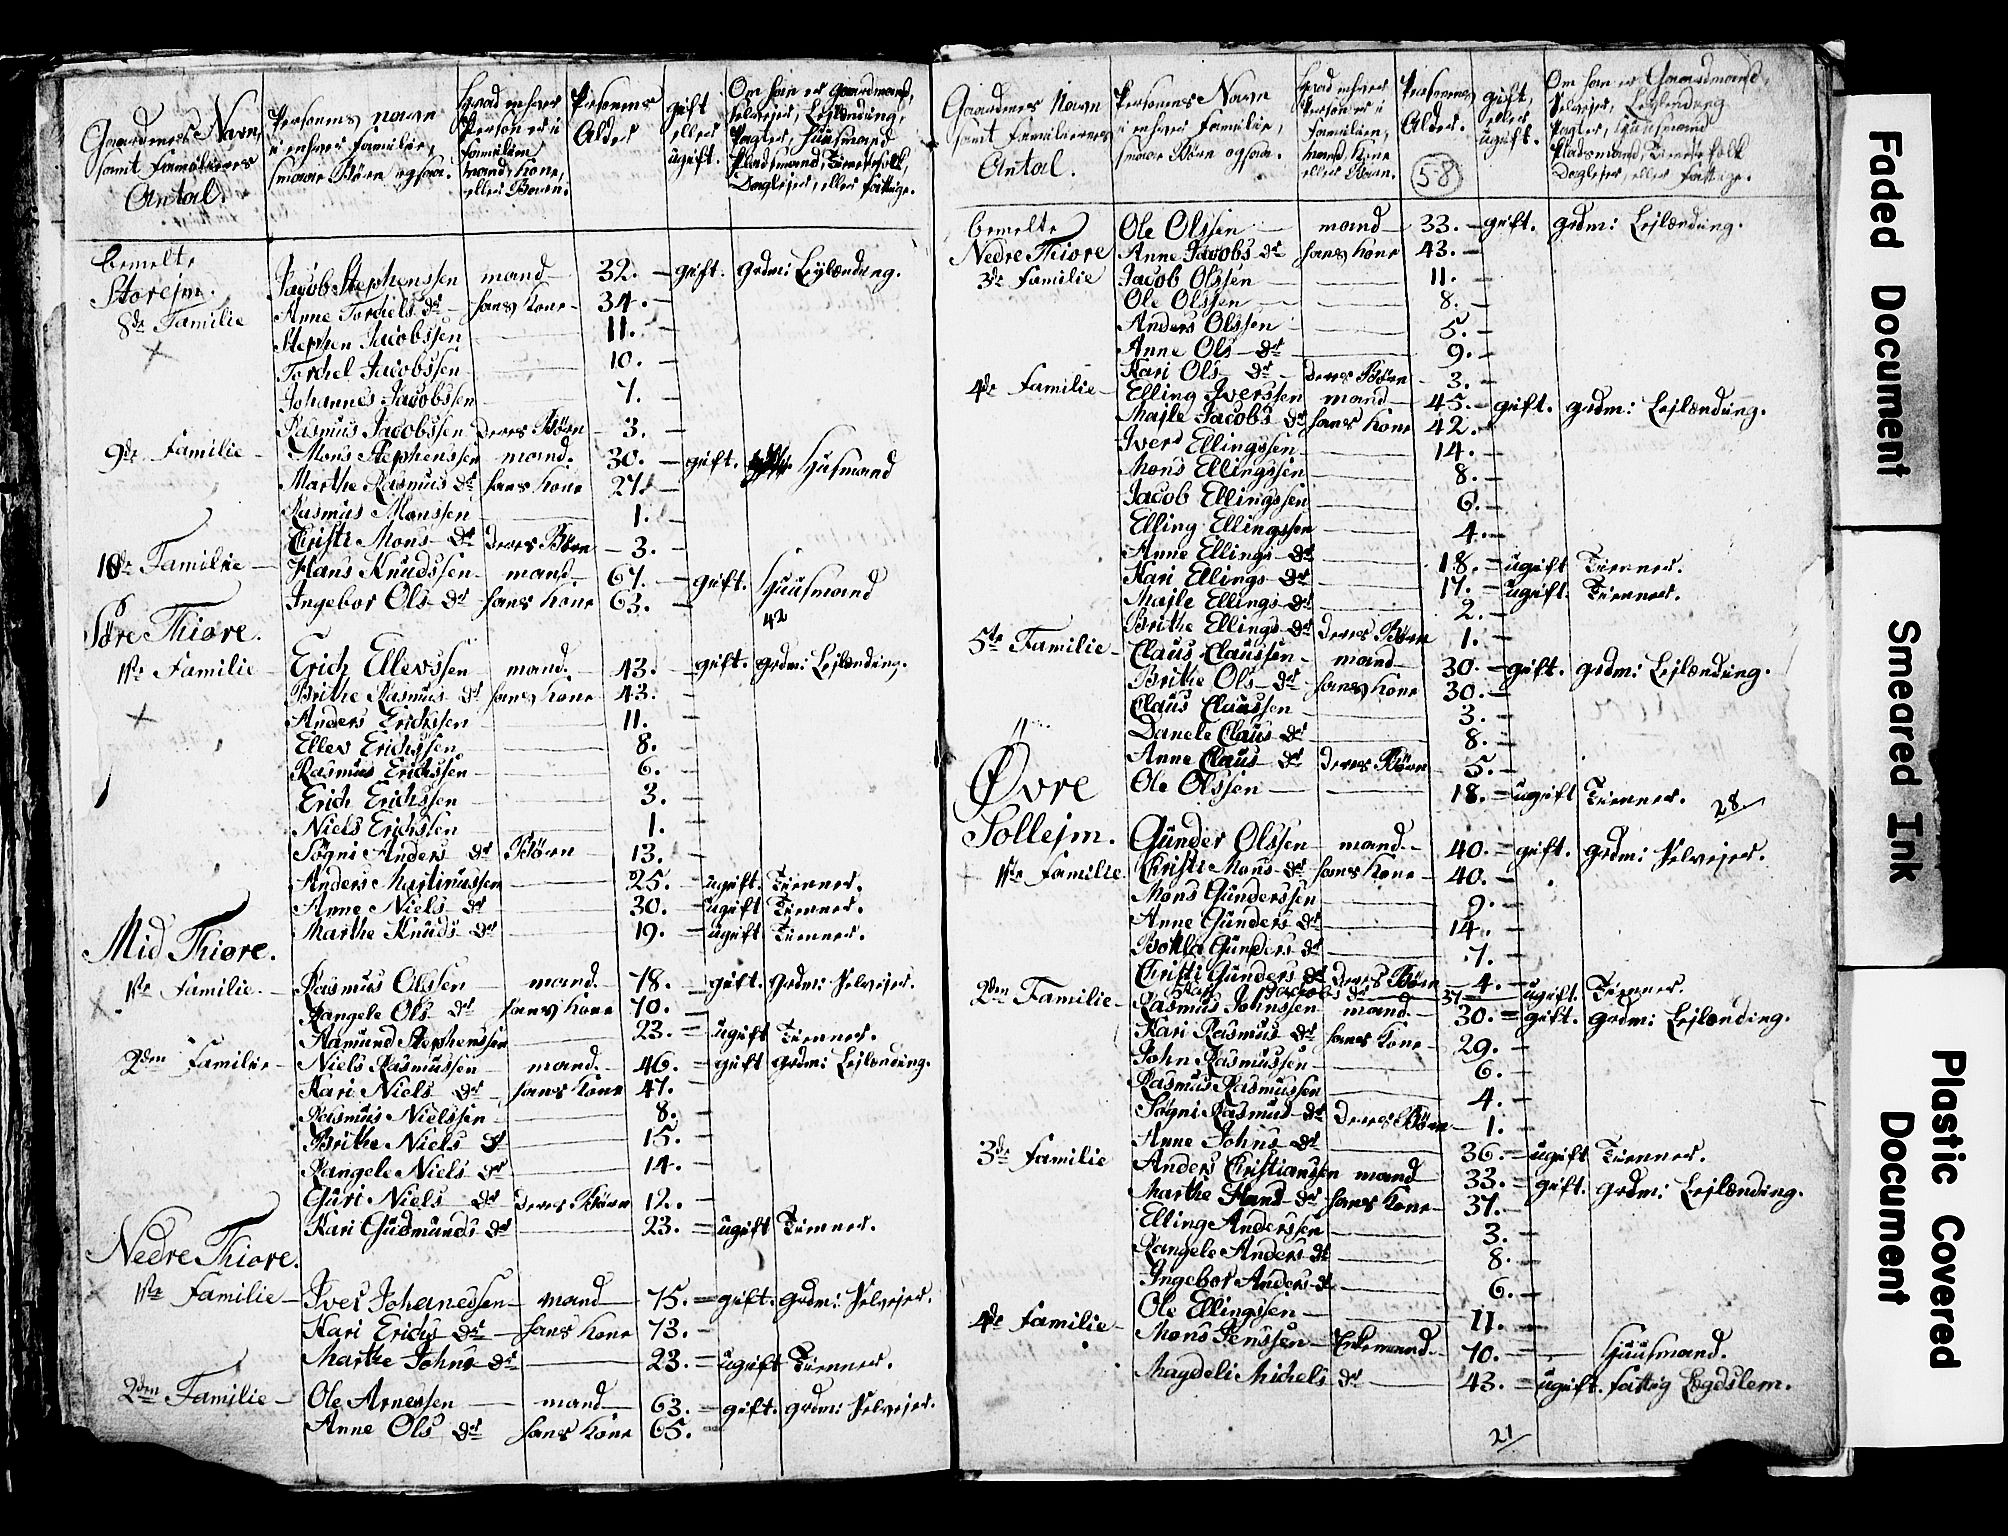 Gaardenes Navn, samt Familiernes Antal.
Personens navn i enhver familie, smaae Børn ogsaa.
hvad enhver Person er i familien mand, kone, eller Barn.
Personens Alder
gift eller ugift.
Om han er Gaardmand, Selvejer, Lejlænding, Pagter, Huusmand Pladsmand, Tienestefolk, Daglejer, eller fattige.
bemelte Storejm.
8de Familie
Jacob Stephenssen mand 32. gift. grdm: Lejlænding.
Anne Torchels dr hans kone 34.
Stephen Jacobssen 11.
Torchel Jacobssen 10.
Johannes Jacobssen 7.
Rasmus Jacobssen deres Børn 3.
9de Familie Mons Stephenssen mand. 30. gift. Huusmand
Marthe Rasmus dr hans kone 27.
Rasmus Monssen 1.
Christi Mons dr deres Børn 3.
10de Familie Hans Knudssen mand 67. gift. Huusmand
Ingebor Ols dr hans kone 63.
42
Søre Thiøre.
1ste Familie Erich Ellevssen mand. 43. gift. grdm: Lejlænding.
Brithe Rasmus dr hans kone 43.
Anders Erichssen 11.
Ellev Erichssen 8.
Rasmus Erichssen 6.
Erich Erichssen 3.
Niels Erichssen 1.
Søgni Anders dr Børn 13.
Anders Martinussen 25. ugift. Tienner.
Anne Niels dr 30. ugift Tienner.
Marthe Knuds dr 19. ugift Tienner.
Mid Thiøre.
1ste Familie Rasmus Olssen mand. 78. gift. grdm: Selvejer.
Rangele Ols dr hans kone 70.
Aamund Stephenssen 23. ugift Tienner.
2den Familie Niels Rasmussen mand. 46. gift grdm: Lejlænding.
Kari Niels dr hans kone 47.
Rasmus Nielssen 8.
Brithe Niels dr 15.
Rangele Niels dr 14.
Guri Niels dr deres Børn 12.
Kari Gudmunds dr 23. ugift Tienner.
Nedre Thiøre.
1ste Familie Iver Johanessen mand 75. gift. grdm: Selvejer.
Kari Erichs dr hans kone 73.
Marthe Johns dr 23. ugift Tienner.
2den Familie Ole Arnessen mand 63. gift. grdm: Selvejer.
Anne Ols dr hans kone 65.
Gaardenes Navn samt Familiernes Antal.
Personens Navn i enhver familie, smaae Børn ogsaa.
hvad enhver Person er i familien, mand, kone eller Barn.
Personens Alder.
58
gift, eller ugift.
Om han er Gaardmand, Selvejer, Lejlænding Pagter, Huusmand Pladsmand, Tienestefolk Daglejer, eller fattige.
bemelte Ole Olssen mand 33. gift. grdm: Lejlænding.
Nedre Thiøre Anne Jacobs dr hans kone 43.
3de Familie Jacob Olssen 11.
Ole Olssen 8.
Anders Olssen 5.
Anne Ols dr 9.
Kari Ols dr deres Børn 3.
4de Familie Elling Iverssen mand 45. gift. grdm: Lejlænding.
Majle Jacobs dr hans kone 42.
Iver Ellingssen 14.
Mons Ellingssen 8.
Jacob Ellingssen 6.
Elling Ellingssen 4.
Anne Ellings dr 18. ugift Tienner.
Kari Ellings dr 17. ugift. Tienner.
Majle Ellings dr 2.
Brithe Ellings dr deres Børn 1.
5te Familie Claus Claussen mand 30. gift. grdm: Lejlænding.
Brithe Ols dr hans kone 30.
Claus Claussen 3.
Danele Claus dr 8.
Anne Claus dr deres Børn 5.
Ole Olssen 18. ugift Tienner. 28
Øvre Sollejm.
1ste Familie Gunder Olssen mand. 40. gift. grdm: Selvejer.
Christi Mons dr hans kone 40.
Mons Gunderssen 9.
Anne Gunders dr 14.
Botlla Gunders dr 7.
Christi Gunders dr deres Børn 4.
Kari Jacobs dr 37 ugift. Tienner.
2den Familie Rasmus Johnssen mand. 30. gift. grdm: Lejlænding.
Kari Rasmus dr hans kone 29.
John Rasmussen 6.
Rasmus Rasmussen 4.
Søgni Rasmus dr deres Børn 1.
Anne Johns dr 36. ugift Tienner.
3de Familie Anders Christianssen mand 33. gift. grdm: Lejlænding.
Marthe dr hans kone 37.
Elling Anderssen 3.
Rangele Anders dr 8.
Ingebor Anders dr 6.
Ole Ellingssen 11.
4de Familie Mons Jenssen Enkemand 70. Huusmand.
Magdeli Michels dr 43. ugift. fattig Lægdslem.
21
Faded Document
Smeared Ink
Plastic Covered Document